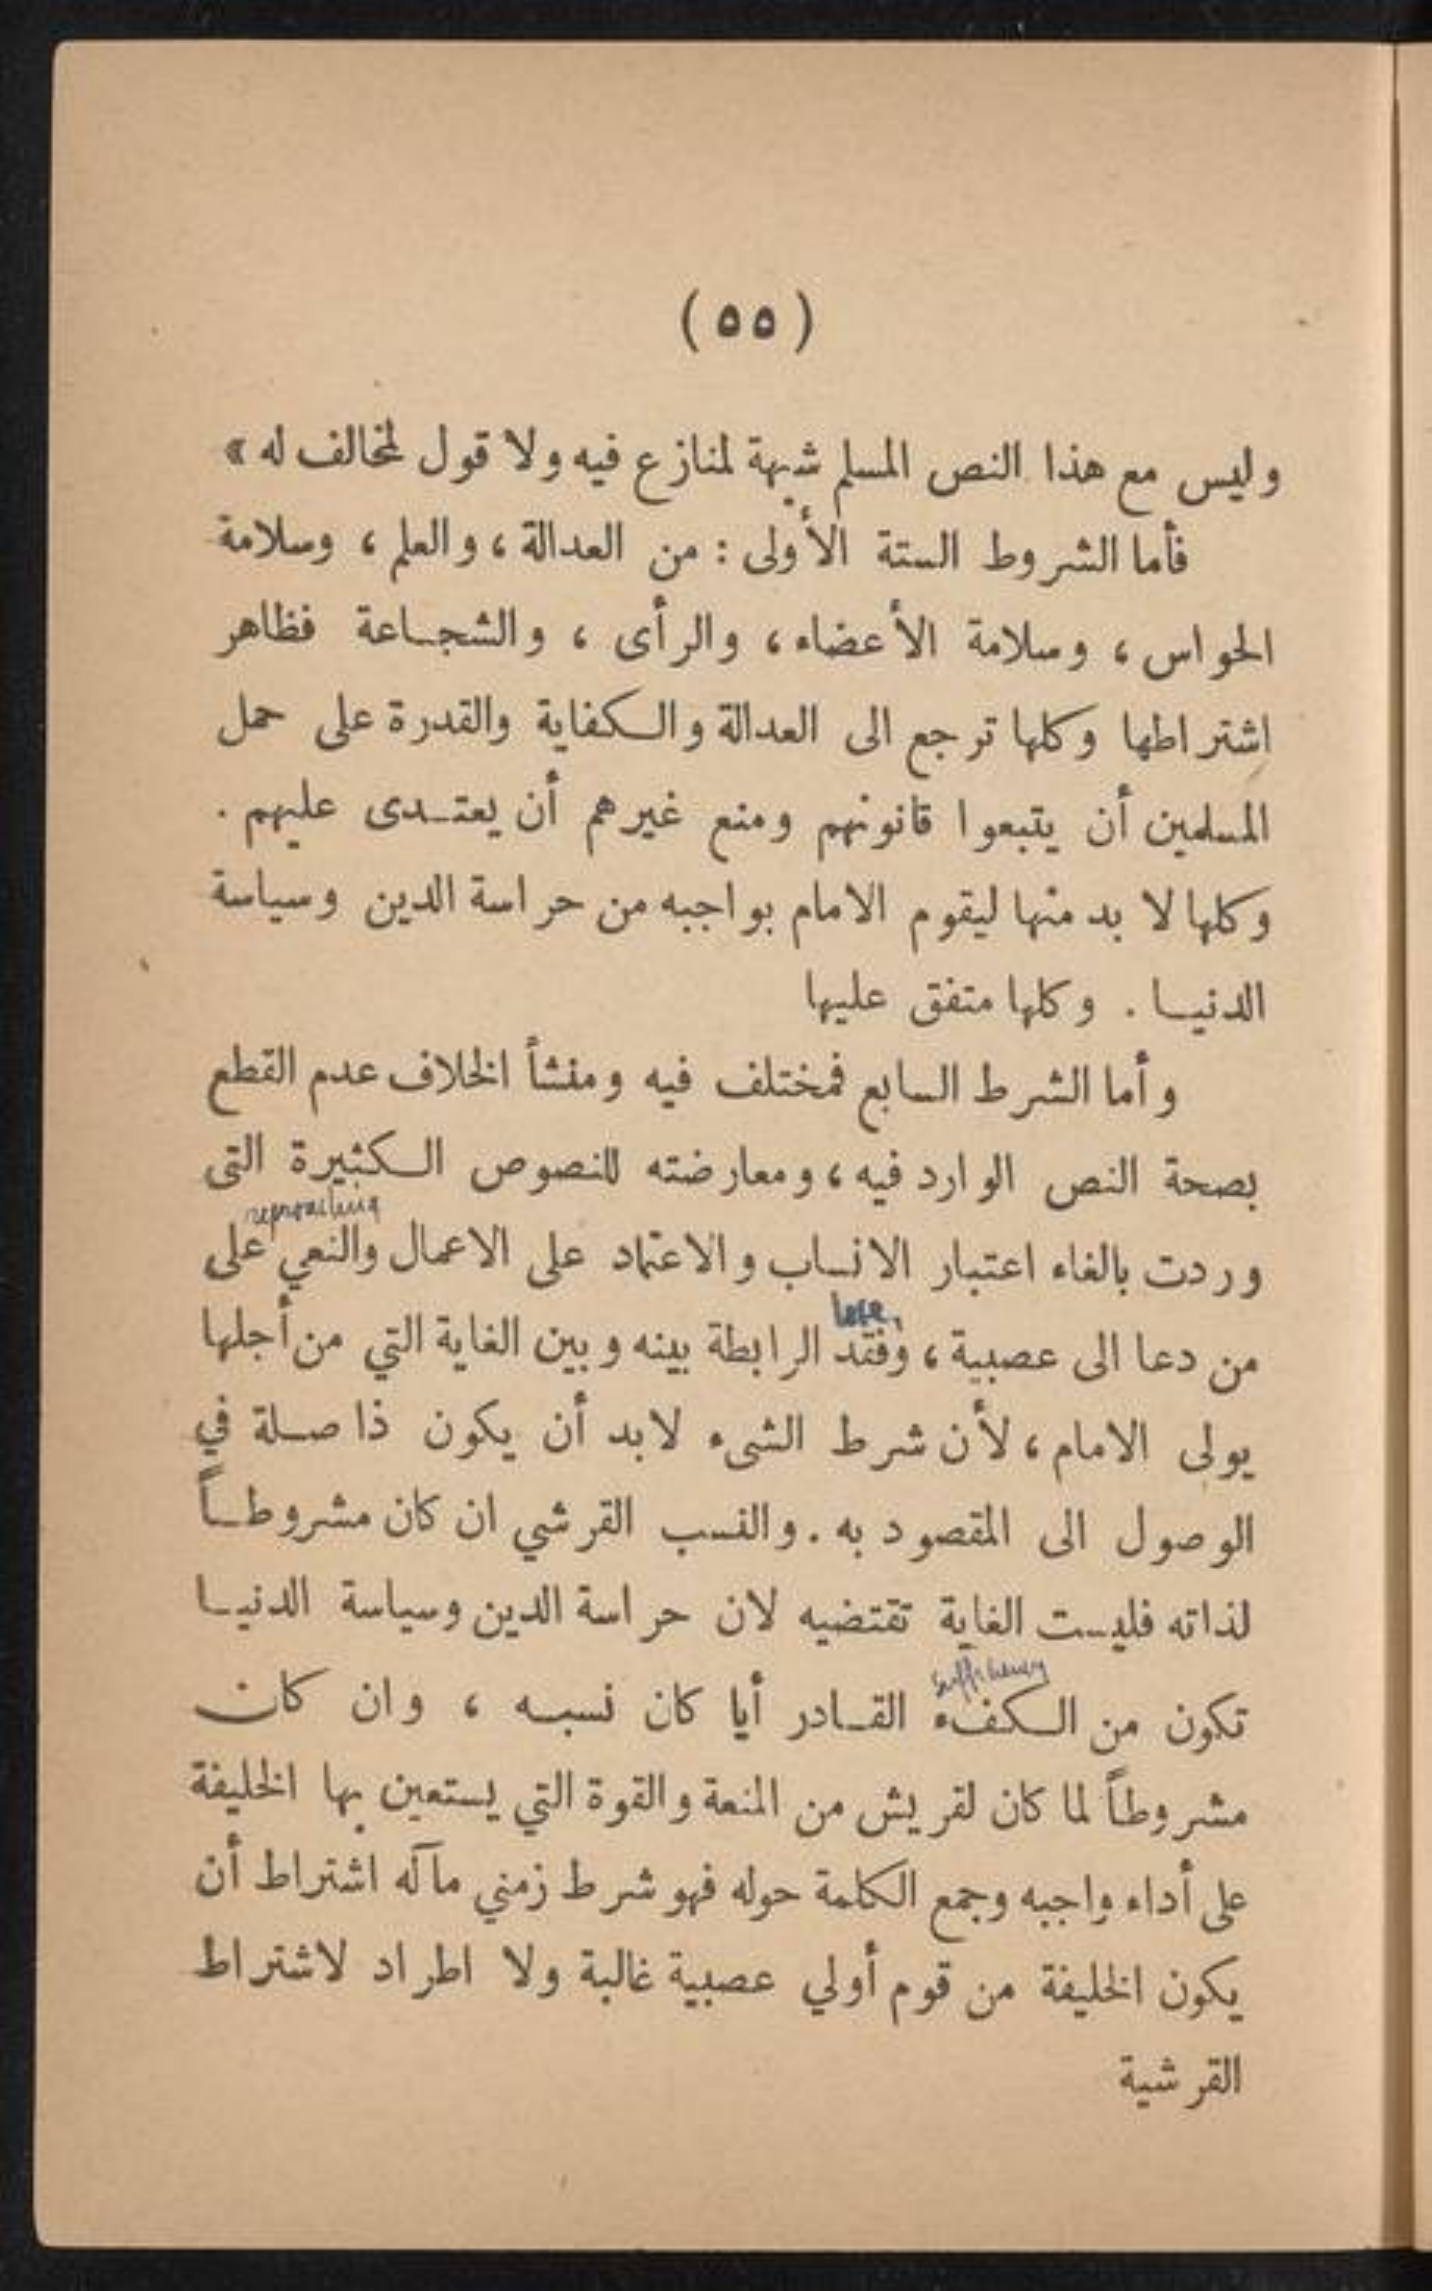 (٥٥)
وليس مع هذا النص المسلم شبهة لمنازع فيه ولا قول لمخالف له »
فأما الشروط الستة الأولى : من العدالة ، والعلم ، وسلامة
الحواس ، وسلامة الأعضاء ، والرأى ، والشجاعة فظاهر
اشتراطها وكلها ترجع الى العدالة والكفاية والقدرة على حمل
المسلمين أن يتبعوا قانونهم ومنع غيرهم أن يعتدى عليهم .
وكلها لا بد منها ليقوم الامام بواجبه من حراسة الدين وسياسة
الدنيا . وكلها متفق عليها
وأما الشرط السابع فمختلف فيه ومنشأ الخلاف عدم القطع
بصحة النص الوارد فيه ، ومعارضته للنصوص الكثيرة التى
reproaching
وردت بالغاء اعتبار الانساب والاعتماد على الاعمال والنعي على
lose
من دعا الى عصبية ، وفقد الرابطة بينه وبين الغاية التي من أجلها
يولى الامام ، لأن شرط الشىء لابد أن يكون ذا صلة في
الوصول الى المقصود به . والنسب القرشي ان كان مشروطاً
لذاته فليست الغاية تقتضيه لان حراسة الدين وسياسة الدنيا
sufficiency
تكون من الكفء القادر أيا كان نسبه ، وان كان
مشروطاً لما كان لقريش من المنعة والقوة التي يستعين بها الخليفة
على أداء واجبه وجمع الكلمة حوله فهو شرط زمني مآله اشتراط أن
يكون الخليفة من قوم أولي عصبية غالبة ولا اطراد لاشتراط
القرشية